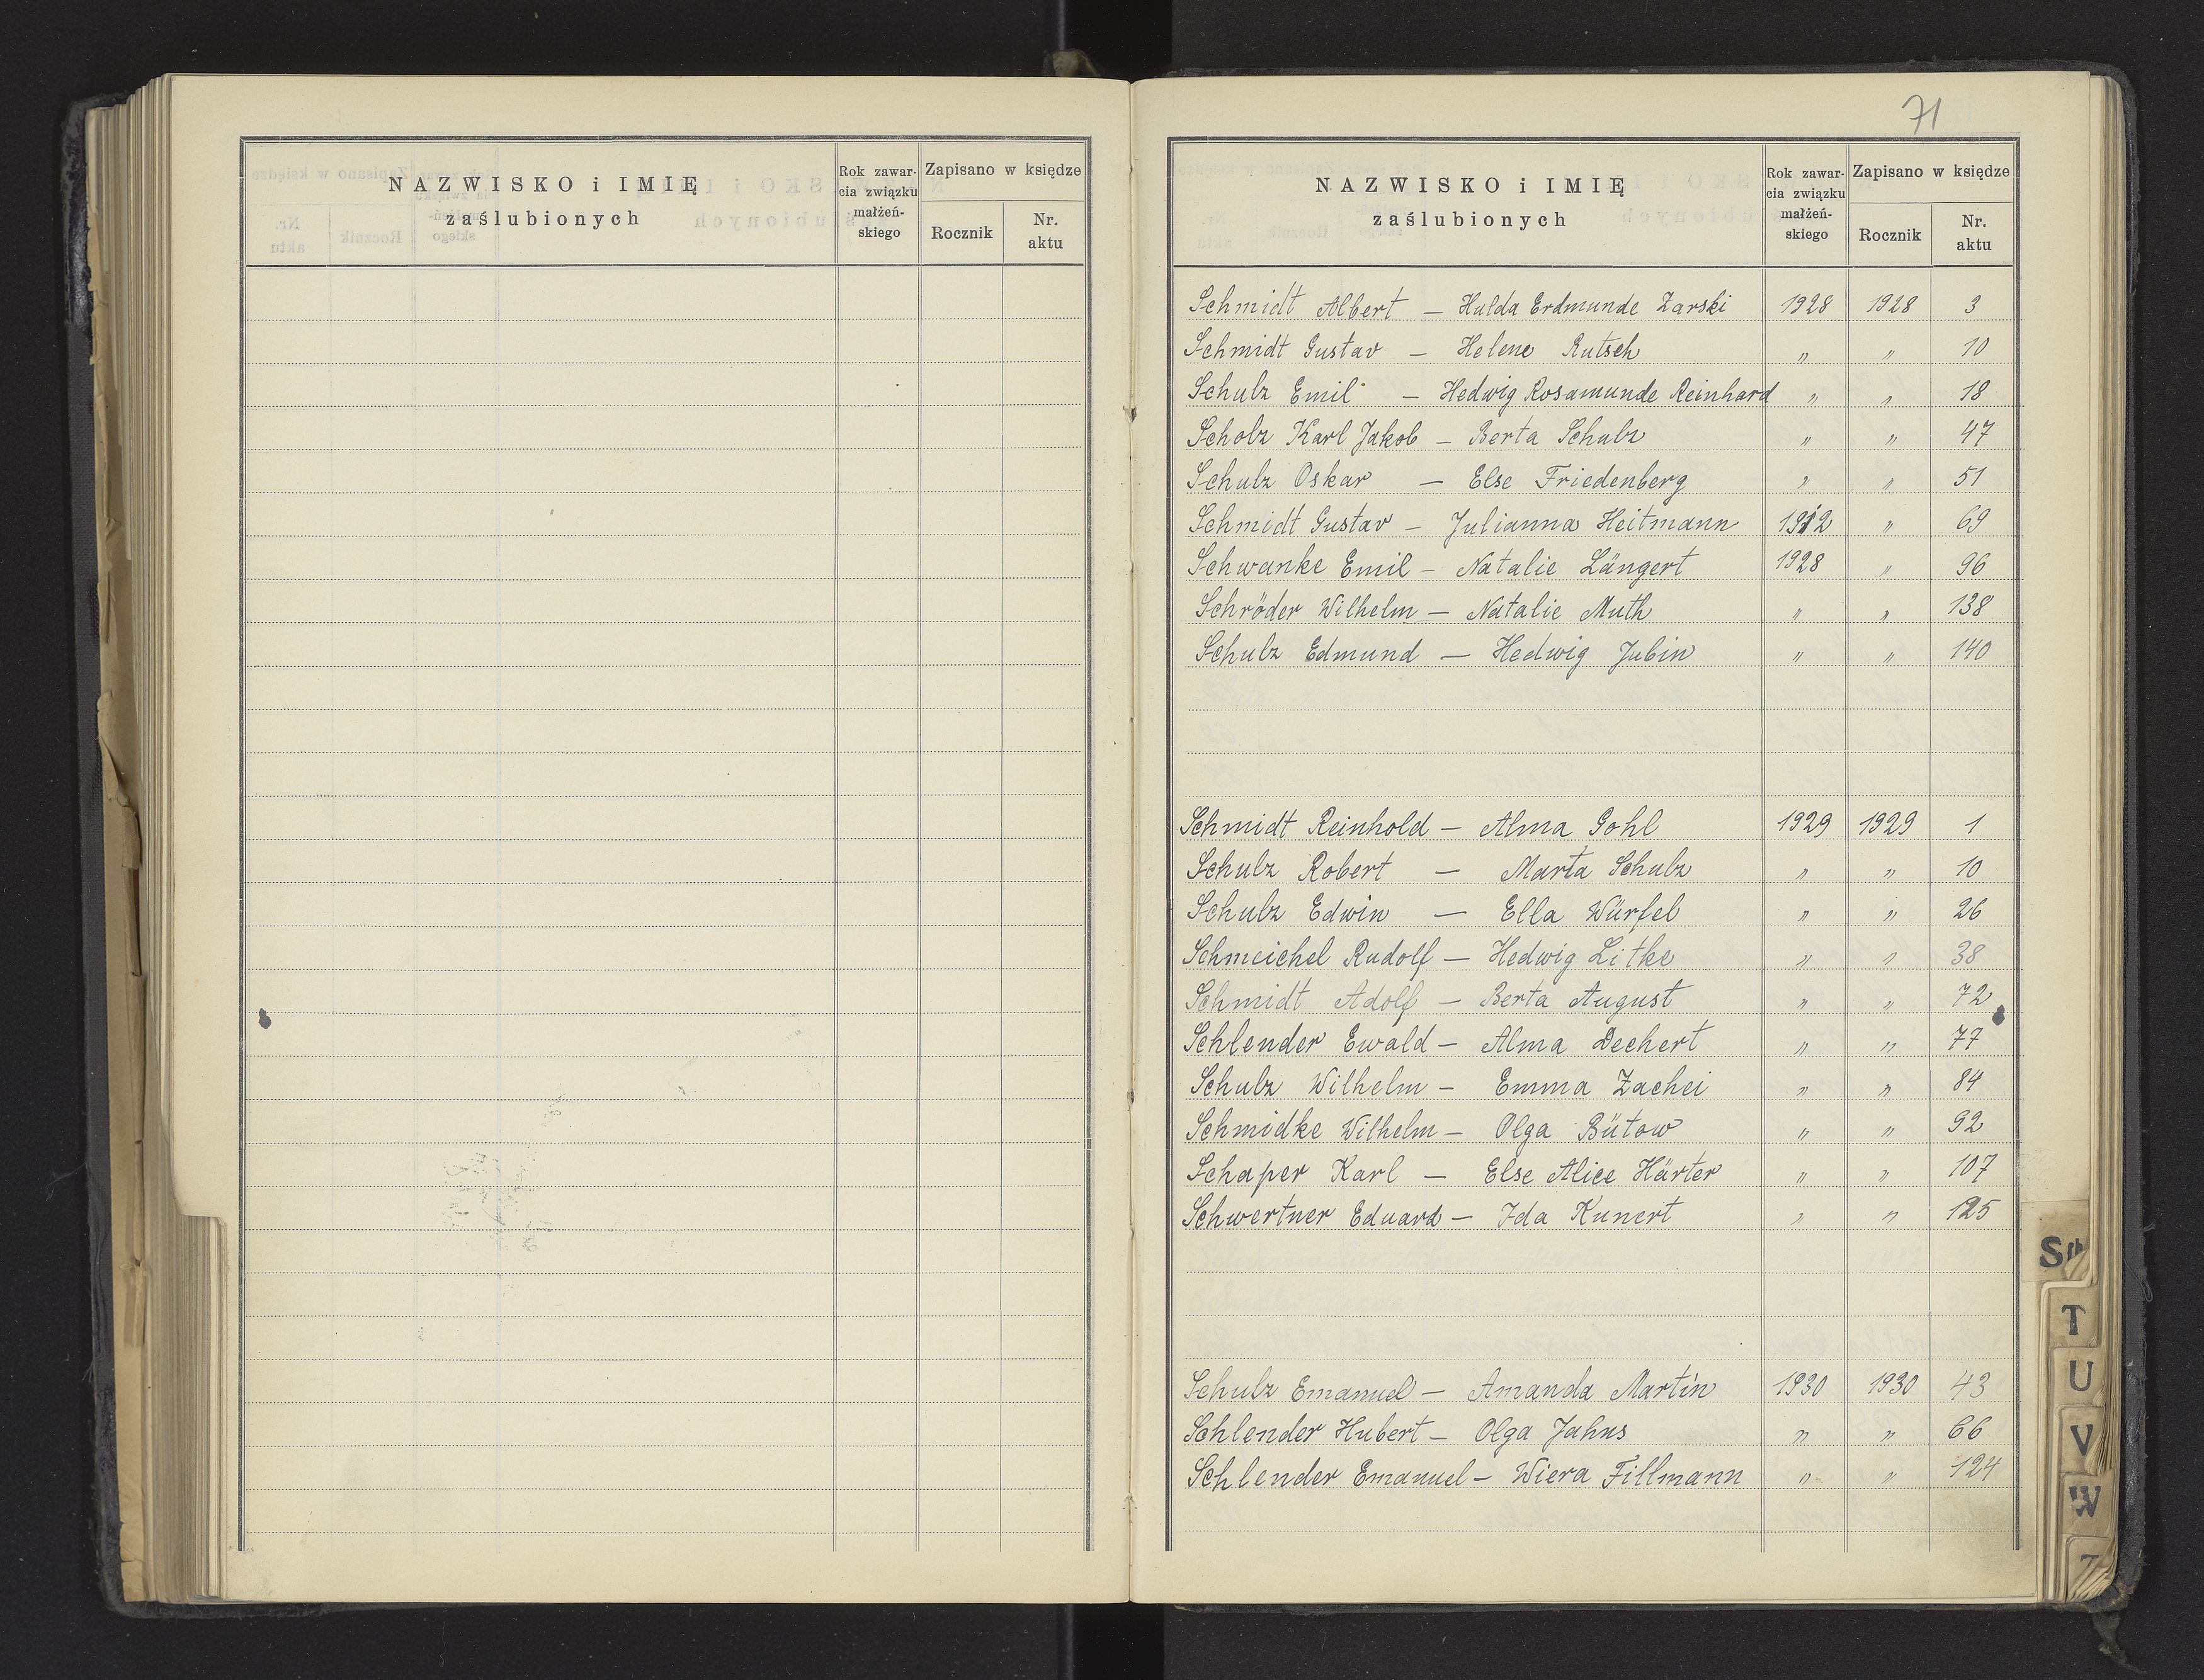 NAZWISKO i IMIĘ
zaślubionych
Rok zawar-
cia związku
małżeń-
skiego
Zapisano w księdze
Rocznik
Nr.
aktu
71
NAZWISKO i IMIĘ
zaślubionych
Rok zawar-
cia związku
małżeń-
skiego
Zapisano w księdze
Rocznik
Nr.
aktu
Schmidt Albert — Hulda Erdmunde Zarski 1928 1928 3
Schmidt Gustav — Helene Rutsch " " 10
Schulz Emil — Hedwig Rosamunde Reinhard " " 18
Scholz Karl Jakob — Berta Schulz " " 47
Schulz Oskar — Else Friedenberg " " 51
Schmidt Gustav — Julianna Heitmann 1912 " 69
Schwanke Emil — Natalie Längert 1928 " 96
Schröder Wilhelm — Natalie Muth " " 138
Schulz Edmund — Hedwig Jubin " " 140
Schmidt Reinhold — Alma Gohl 1929 1929 1
Schulz Robert — Marta Schulz " " 10
Schulz Edwin — Ella Würfel " " 26
Schmeichel Rudolf — Hedwig Litke " " 38
Schmidt Adolf — Berta August " " 72
Schlender Ewald — Alma Dechert " " 77
Schulz Wilhelm — Emma Zachei " " 84
Schmidke Wilhelm — Olga Bütow " " 92
Schaper Karl — Else Alice Härter " " 107
Schwertner Eduard — Ida Kunert " " 125
Schulz Emanuel — Amanda Martin 1930 1930 43
Schlender Hubert — Olga Jahns " " 66
Schlender Emanuel — Wiera Fillmann " " 124
T
U
V
W